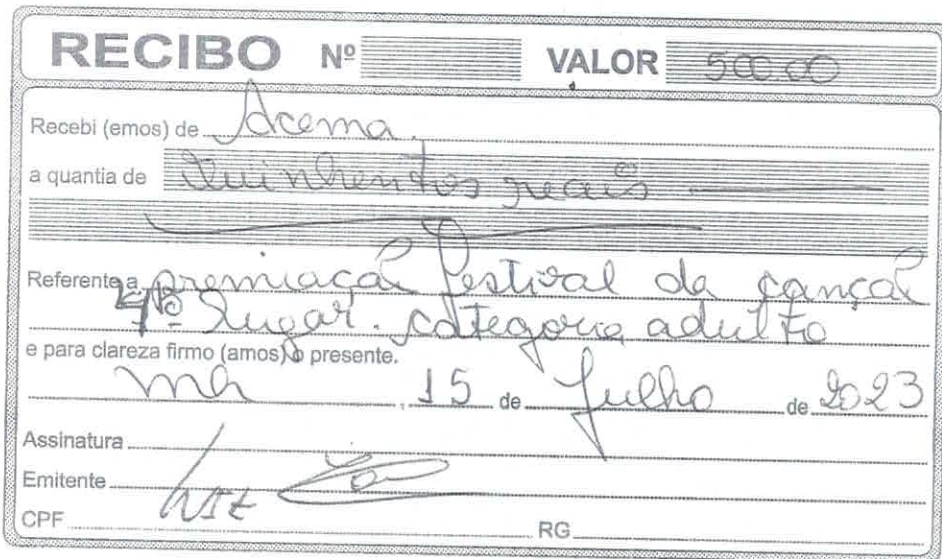 RECIBO Nº VALOR 500.00
Recebi (emos) de Acema.
a quantia de Quinhentos reais
Referente a premiação festival da canção
4º Lugar. categoria adulto
e para clareza firmo (amos) o presente.
15 de Julho de 2023
Assinatura
Emitente Luiz
CPF RG